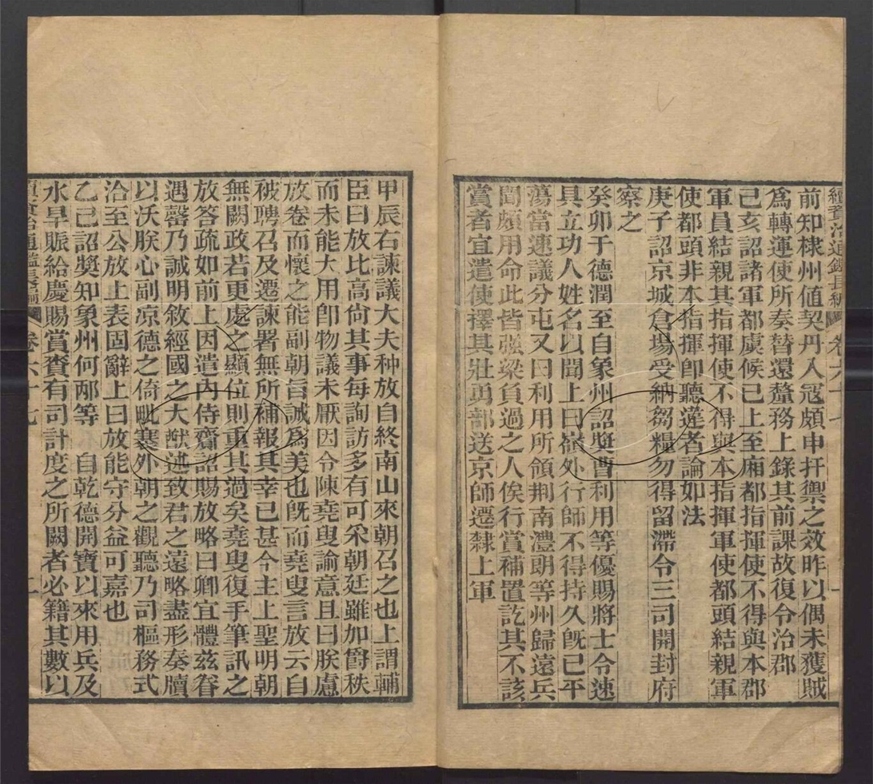 續資治通鑑長編 卷六十七 一
前知棣州値契丹入寇頗申扞禦之效昨以偶未獲賊
爲轉運使所奏替還釐務上錄其前課故復令治郡
己亥詔諸軍都虞候已上至廂都指揮使不得與本郡
軍員結親其指揮使不得與本指揮軍使都頭結親軍
使都頭非本指揮卽聽違者論如法
庚子詔京城倉場受納芻糧勿得留滯令三司開封府
察之
癸卯于德潤至自象州詔獎曹利用等優賜將士令速
具立功人姓名以聞上曰嶺外行師不得持久旣已平
蕩當連議分屯又曰利用所領荆南澧朗等州歸遠兵
聞頗用命此皆强梁負過之人俟行賞補置訖其不該
賞者宜遣使擇其壯勇部送京師遷隸上軍
甲辰右諫議大夫种放自終南山來朝召之也上謂輔
臣曰放比高尙其事每詢訪多有可采朝廷雖加爵秩
而未能大用卽物議未厭因令陳堯叟諭意且曰朕慮
放卷而懷之能副朝旨誠爲美也旣而堯叟言放云自
被聘召及遷諫署無所補報其幸已甚今主上聖明朝
無闕政若更處之顯位則重其過矣堯叟復手筆訊之
放答疏如前上因遣内侍齎詔賜放略曰卿宜體兹眷
遇罄乃誠明敘經國之大猷述致君之遠略盡形奏牘
以沃朕心副凉德之倚毗塞外朝之觀聽乃司樞務式
洽至公放上表固辭上曰放能守分益可嘉也
乙巳詔獎知象州何邴等 自乾德開寶以來用兵及
水旱賑給慶賜賞賚有司計度之所闕者必籍其數以
續資治通鑑長編 卷六十七